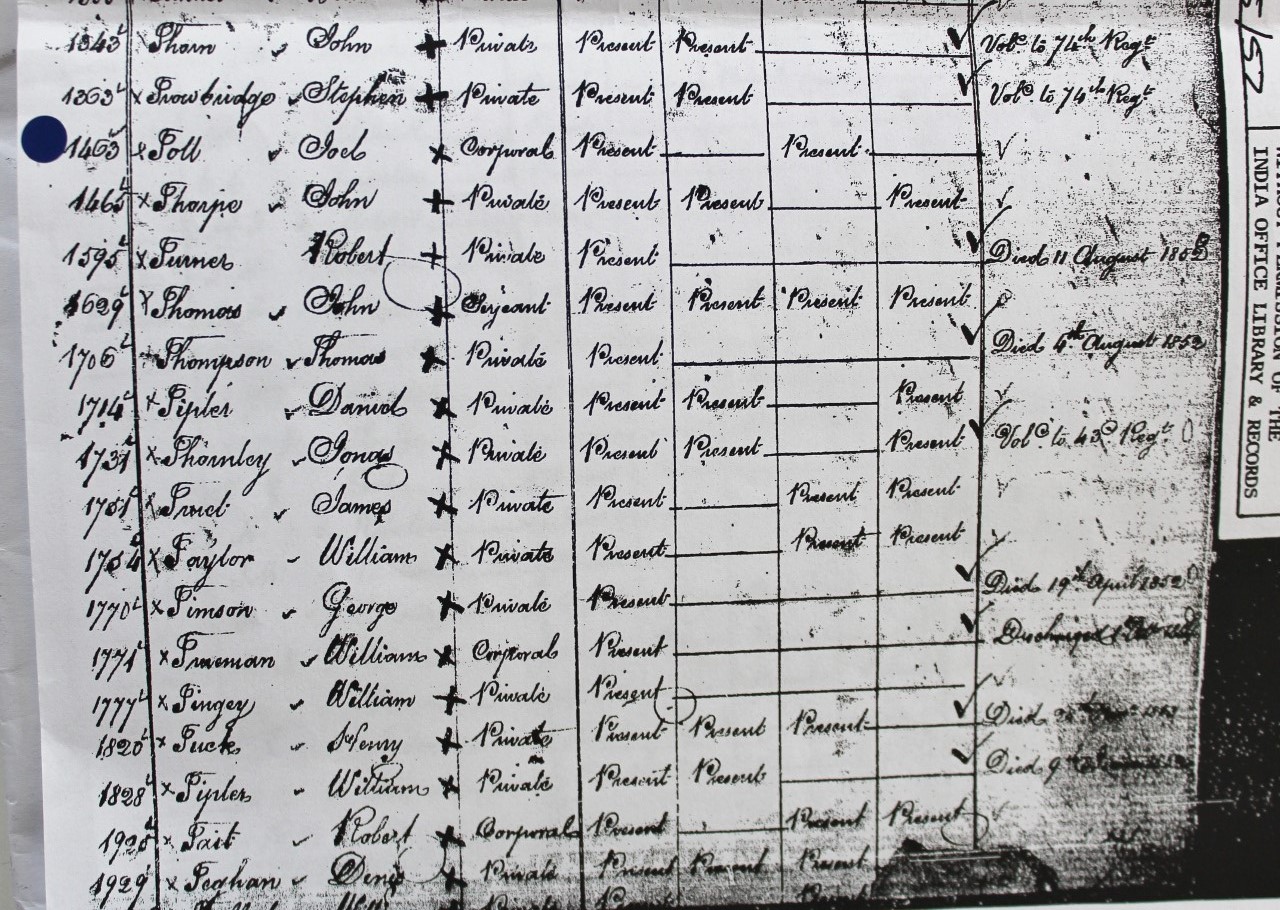 1343 Thorn John Private Present Present Vol. to 74th Regt
1363 Trowbridge Stephen Private Present Present Vol. to 74th Regt
1463 Toll Joel Corporal Present Present
1465 Tharpe John Private Present Present Present
1595 Turner Robert Private Present Died 11 August 1852
1629 Thomas John Serjeant Present Present Present Present
1706 Thompson Thomas Private Present Died 4th August 1852
1714 Tipler Daniel Private Present Present Present
1731 Thornley Jonas Private Present Present Present Vol. to 43d Regt
1751 James Private Present Present Present
1754 Taylor William Private Present Present Present
1770 Timson George Private Present Died 19th April 1852
1771 William Corporal Present Discharged
1777 Tingey William Private Present
1820 Tuck Henry Private Present Present Present Died
1828 Tipler William Private Present Present Died 9th
1925 Tait Robert Corporal Present Present Present
1929 Teghan Denis Private Present Present Present
5/52
OF THE
INDIA OFFICE LIBRARY & RECORDS